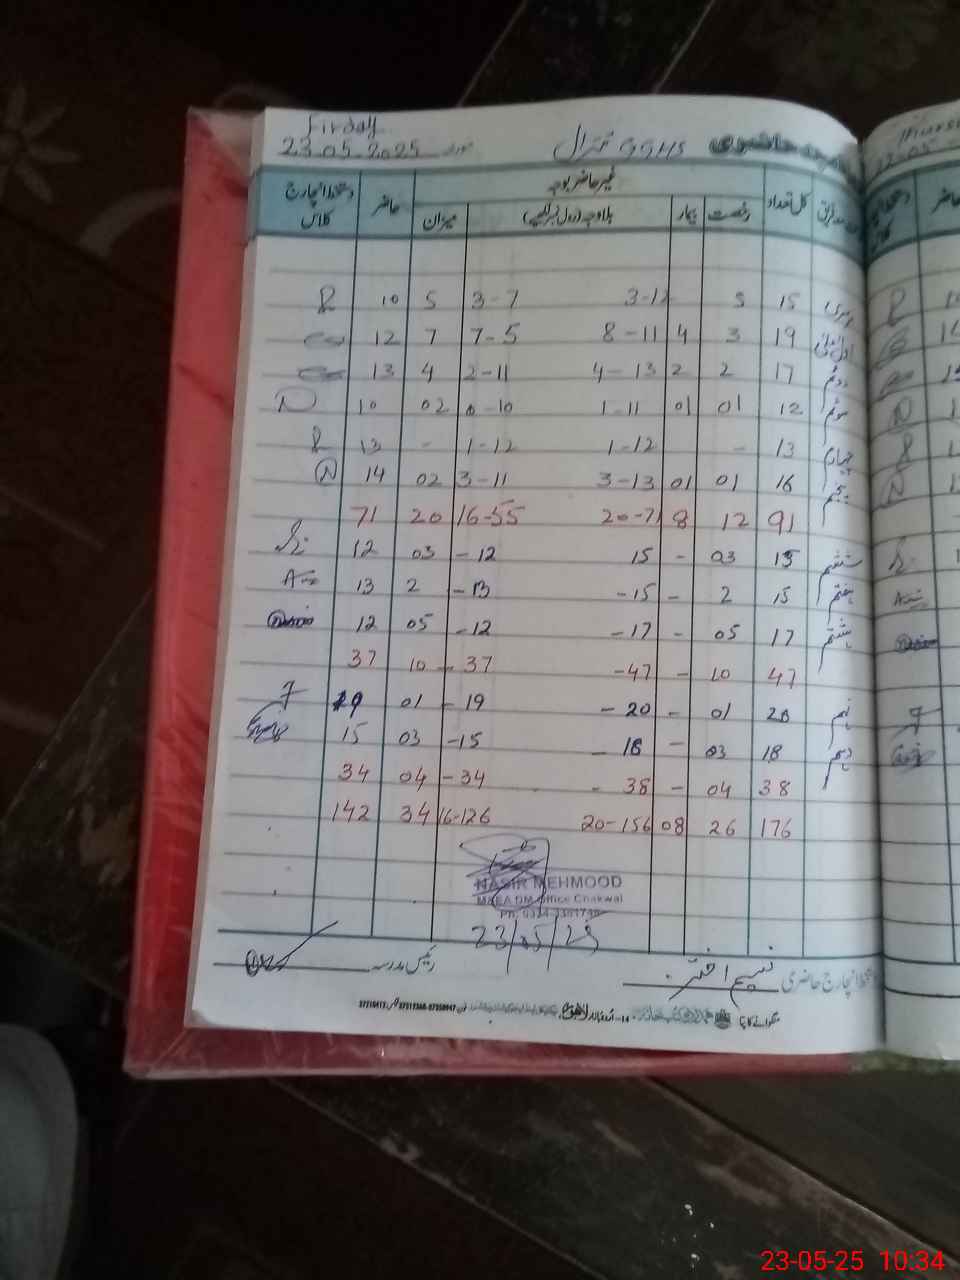 Firday
23.05.2025 مورخہ GGHS حاضری
دستخط انچارج کلاس حاضر غیر حاضر بوجہ کل تعداد
میزان بلاوجہ (رول نمبر لکھیے) بیمار رخصت
10 5 3-7 3-12 5 15
12 7 7-5 8-11 4 3 19
13 4 2-11 4-13 2 2 17 دوئم
10 02 0-10 1-11 01 01 12 سوئم
13 - 1-12 1-12 - 13 چہارم
14 02 3-11 3-13 01 01 16 پنجم
71 20 16-55 20-71 8 12 91
12 03 -12 15 - 03 15 ششم
13 2 -13 -15 - 2 15 ہفتم
12 05 -12 -17 - 05 17 ہشتم
37 10 -37 -47 - 10 47
19 01 -19 -20 - 01 20 نہم
15 03 -15 -18 - 03 18 دہم
34 04 -34 -38 - 04 38
142 34 16-126 20-156 08 26 176
NASIR MEHMOOD
MAEA DM Office Chakwal
23/05/25
دستخط انچارج حاضری نسیم اختر رئیس مدرسہ
23-05-25 10:34